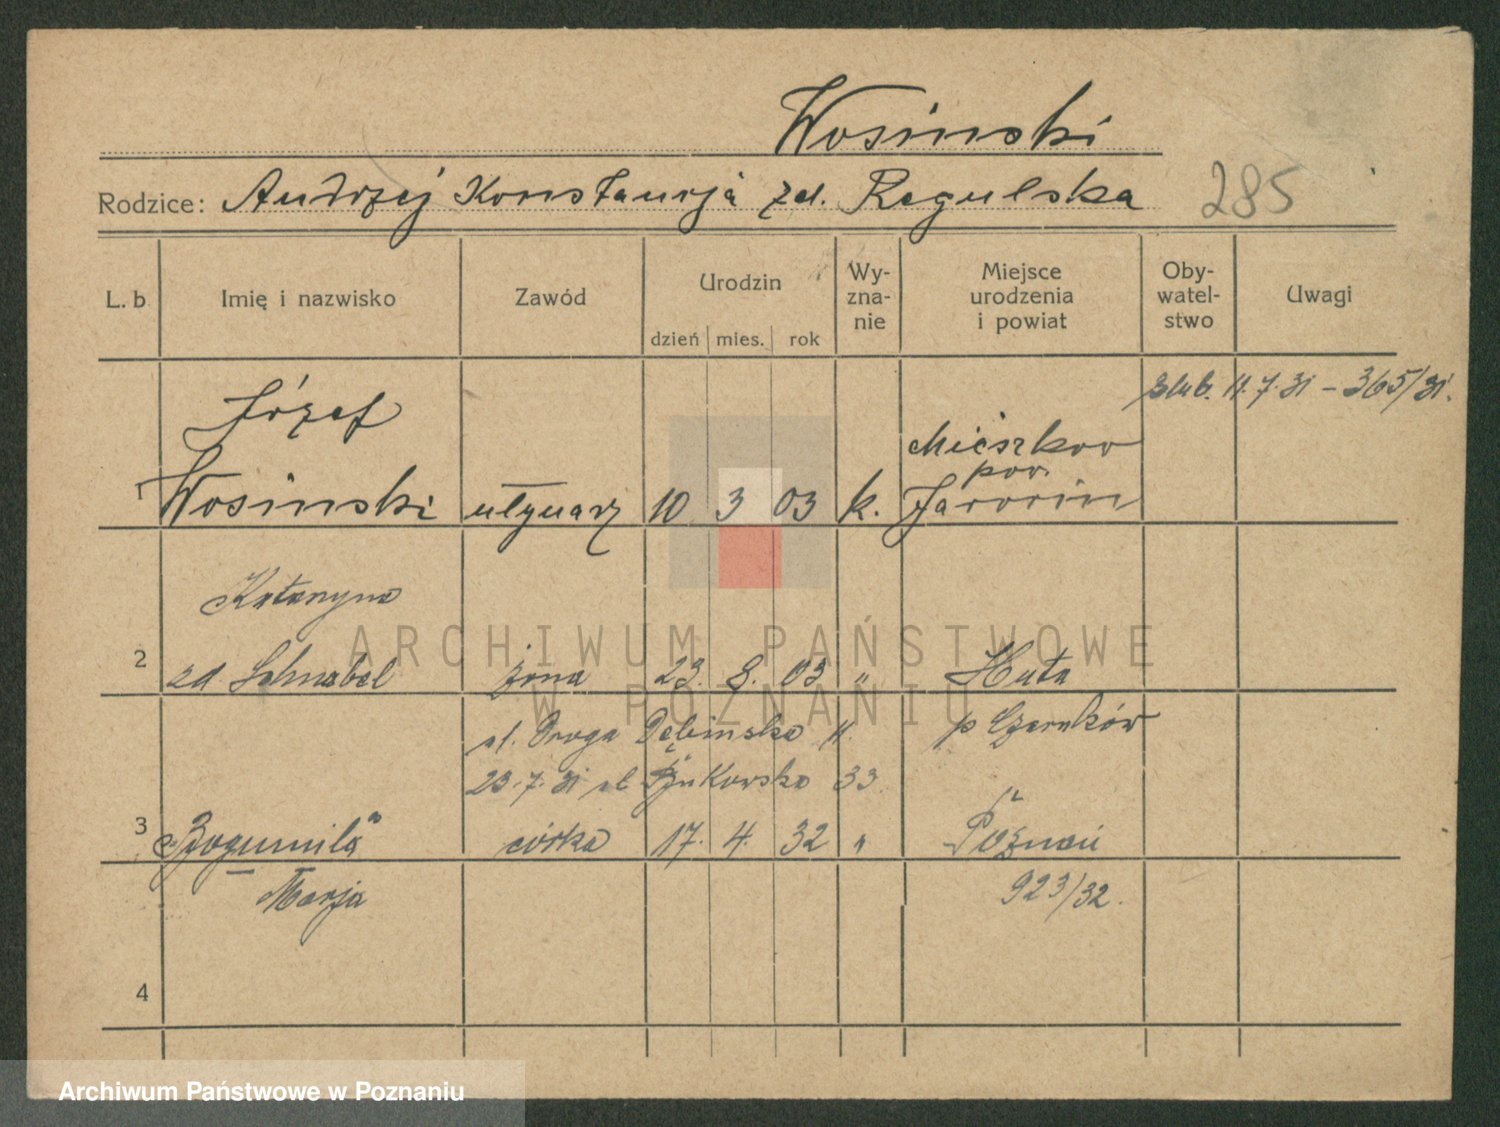 Wosinski
Rodzice: Andrzej Konstancja zd. Regulska 285
L. b Imię i nazwisko Zawód Urodzin dzień mies. rok Wy-zna-nie Miejsce urodzenia i powiat Oby-watel-stwo Uwagi
ślub. 11.7.31 – 365/31.
Józef Mieszkow
pow.
1 Wosinski młynarz 10 3 03 k. Jarocin
Katarzyna
2 zd Schnabel żona 23. 8. 03 " Huta
ul. Droga Dębinska 11. p Czarnków
23.7.31 ul. Bukowska 33
3 Bogumila córka 17. 4. 32 " Poznań
Marja 923/32.
4
ARCHIWUM PAŃSTWOWE
W POZNANIU
Archiwum Państwowe w Poznaniu